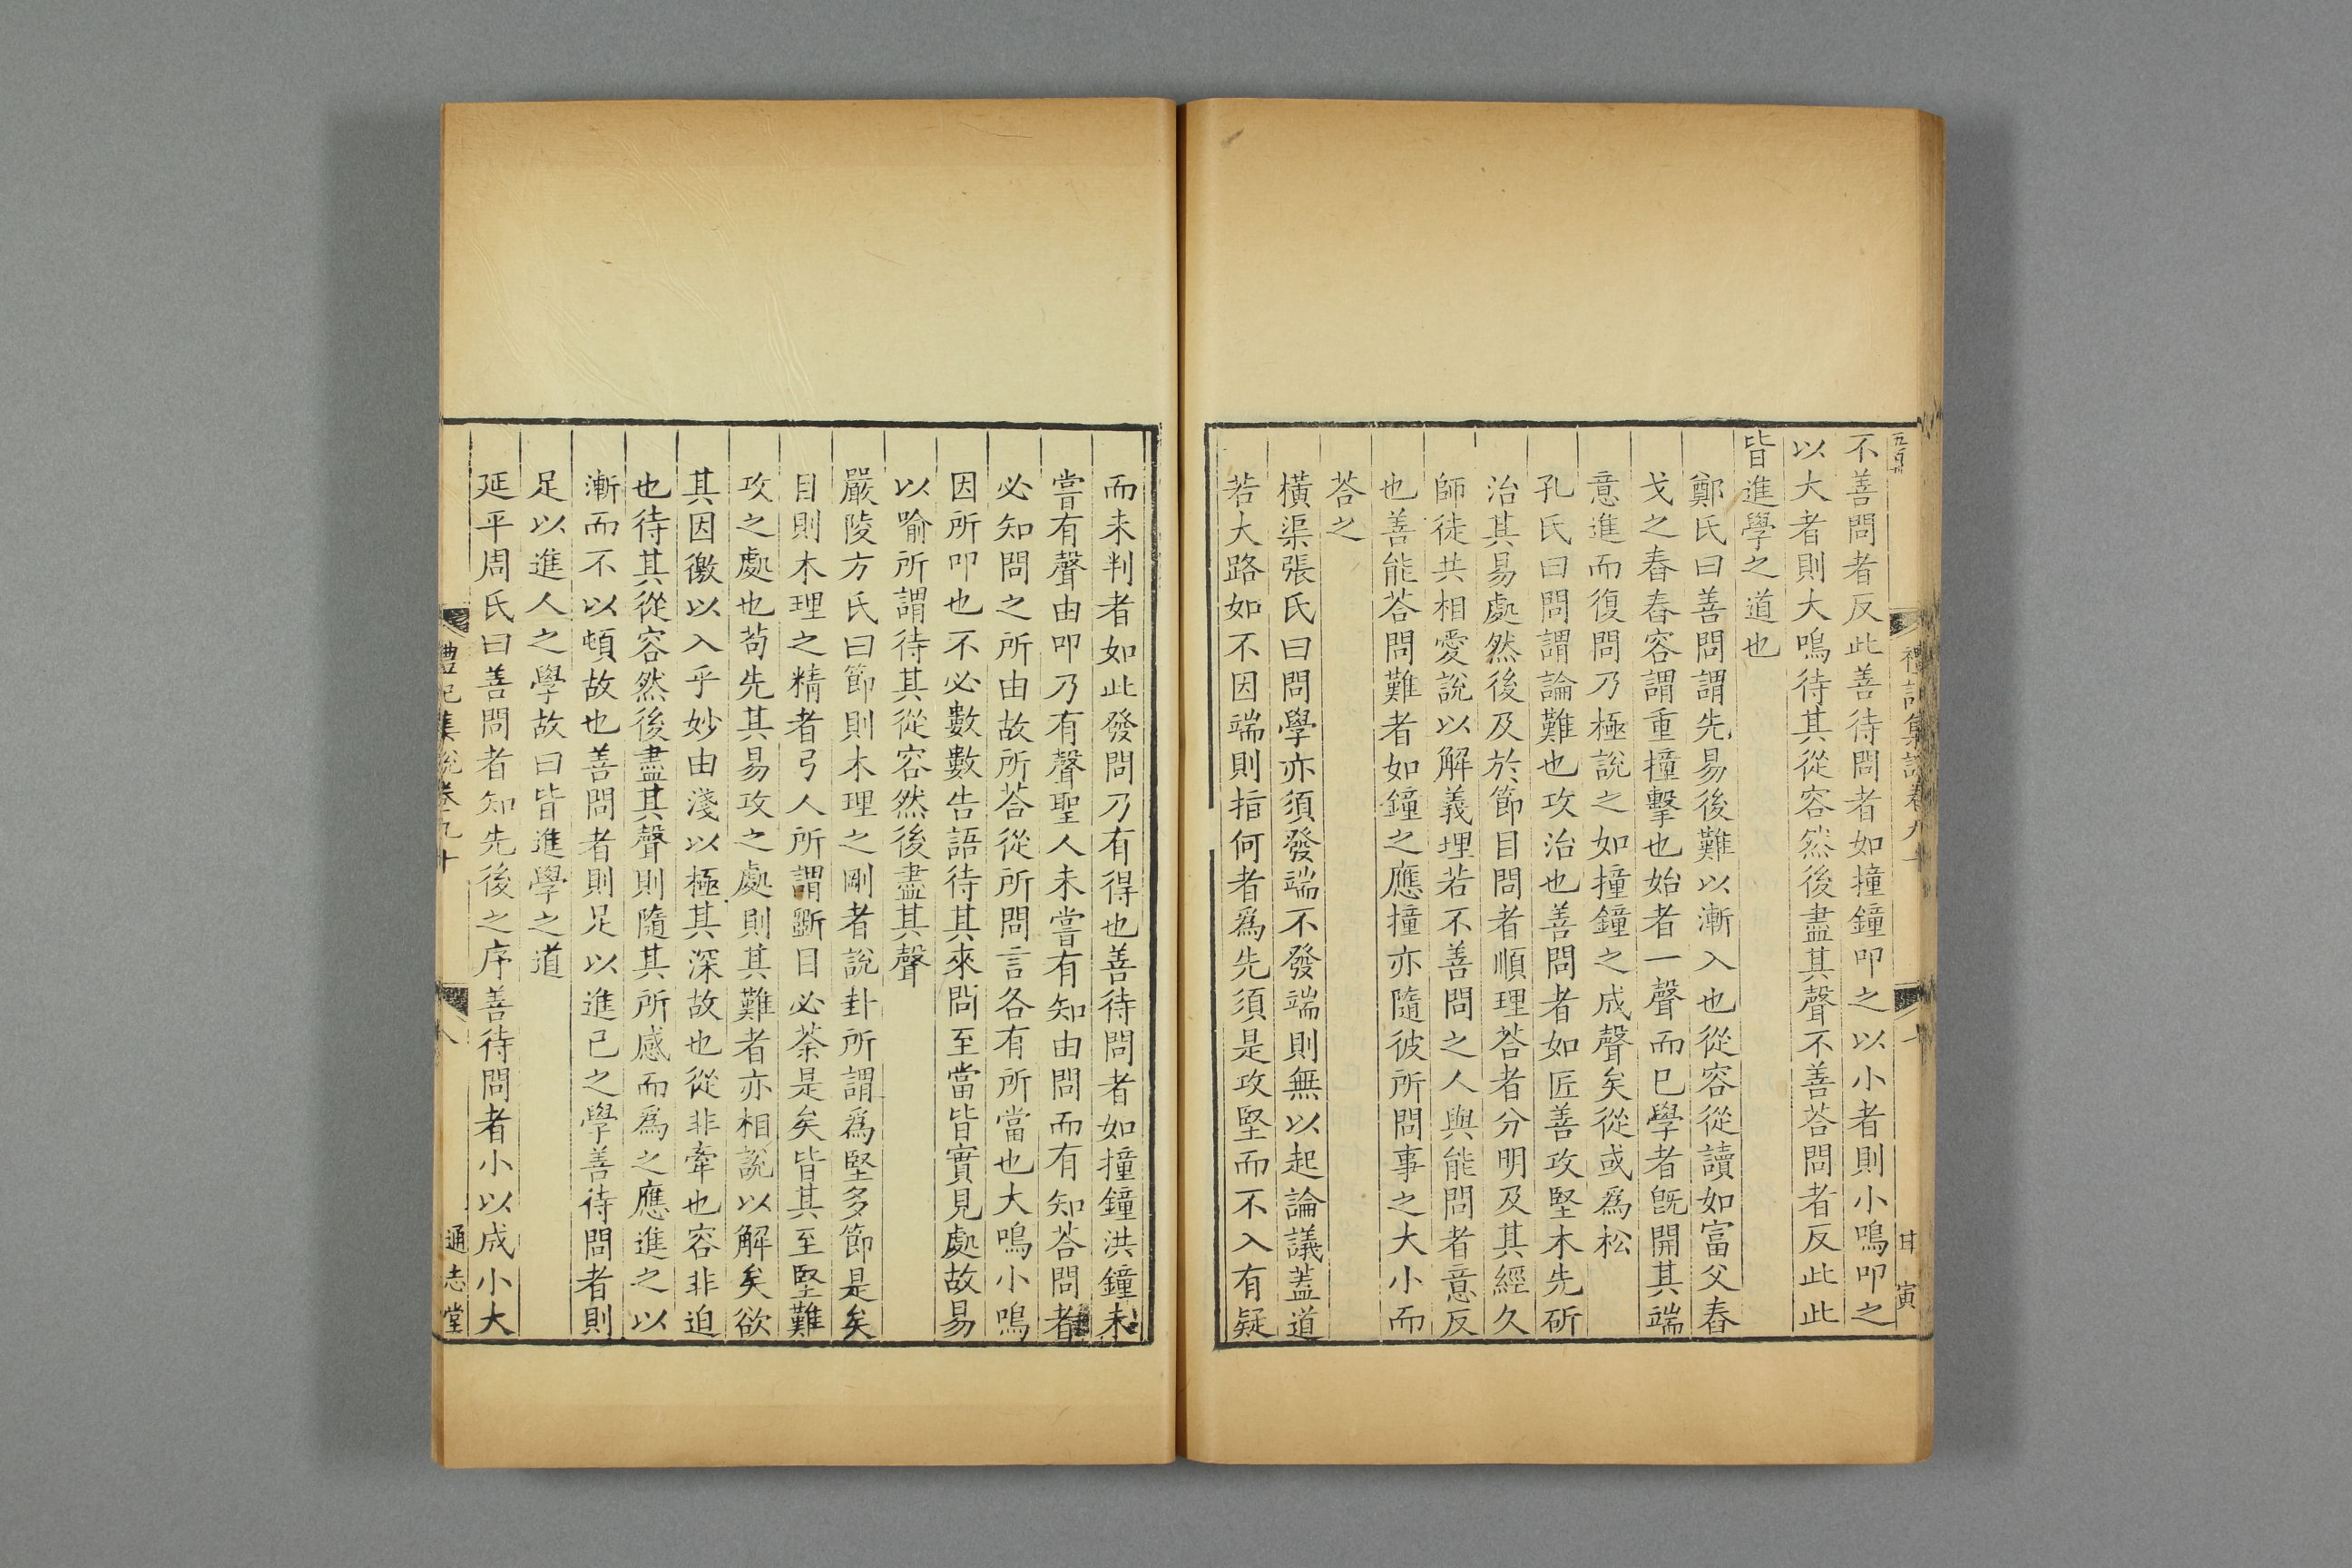 不善問者反此善待問者如撞鐘叩之以小者則小鳴叩之
以大者則大鳴待其從容然後盡其聲不善荅問者反此此
皆進學之道也
鄭氏曰善問謂先易後難以漸入也從容從讀如富父舂
戈之舂舂容謂重撞擊也始者一聲而已學者旣開其端
意進而復問乃極說之如撞鐘之成聲矣從或爲松
孔氏曰問謂論難也攻治也善問者如匠善攻堅木先斫
治其易處然後及於節目問者順理荅者分明及其經久
師徒共相愛說以解義理若不善問之人與能問者意反
也善能荅問難者如鐘之應撞亦隨彼所問事之大小而
荅之
橫渠張氏曰問學亦須發端不發端則無以起論議蓋道
若大路如不因端則指何者爲先須是攻堅而不入有疑
而未判者如此發問乃有得也善待問者如撞鐘洪鐘未
嘗有聲由叩乃有聲聖人未嘗有知由問而有知荅問者
必知問之所由故所荅從所問言各有所當也大鳴小鳴
因所叩也不必數數告語待其來問至當皆實見處故易
以喻所謂待其從容然後盡其聲
嚴陵方氏曰節則木理之剛者說卦所謂爲堅多節是矣
目則木理之精者弓人所謂斲目必荼是矣皆其至堅難
攻之處也茍先其易攻之處則其難者亦相說以解矣欲
其因徼以入乎妙由淺以極其深故也從非牽也容非迫
也待其從容然後盡其聲則隨其所感而爲之應進之以
漸而不以頓故也善問者則足以進己之學善待問者則
足以進人之學故曰皆進學之道
延平周氏曰善問者知先後之序善待問者小以成小大
禮記集說卷九十
八
通志堂
禮記集說卷九十
七
甘寅